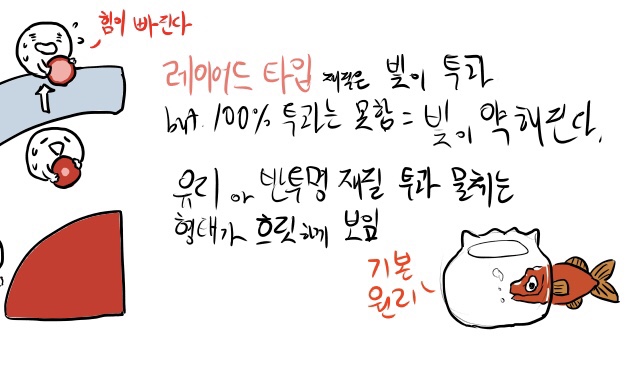 힘이 빠진다
레이어드 타입 재질은 빛이 투과
but. 100% 투과는 못함 = 빛이 약해진다.
유리 or 반투명 재질 투과 물체는
형태가 흐릿하게 보임
기본
원리